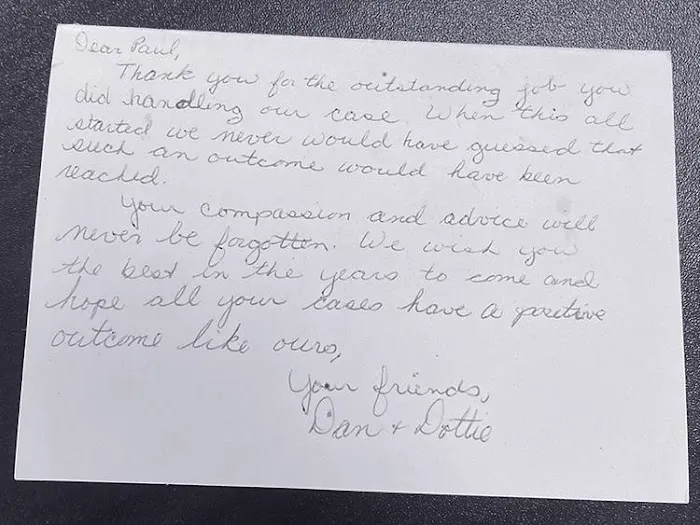 Dear Paul,
Thank you for the outstanding job you
did handling our case. When this all
started we never would have guessed that
such an outcome would have been
reached.
Your compassion and advice will
never be forgotten. We wish you
the best in the years to come and
hope all your cases have a positive
outcome like ours,
Your friends,
Dan + Dottie